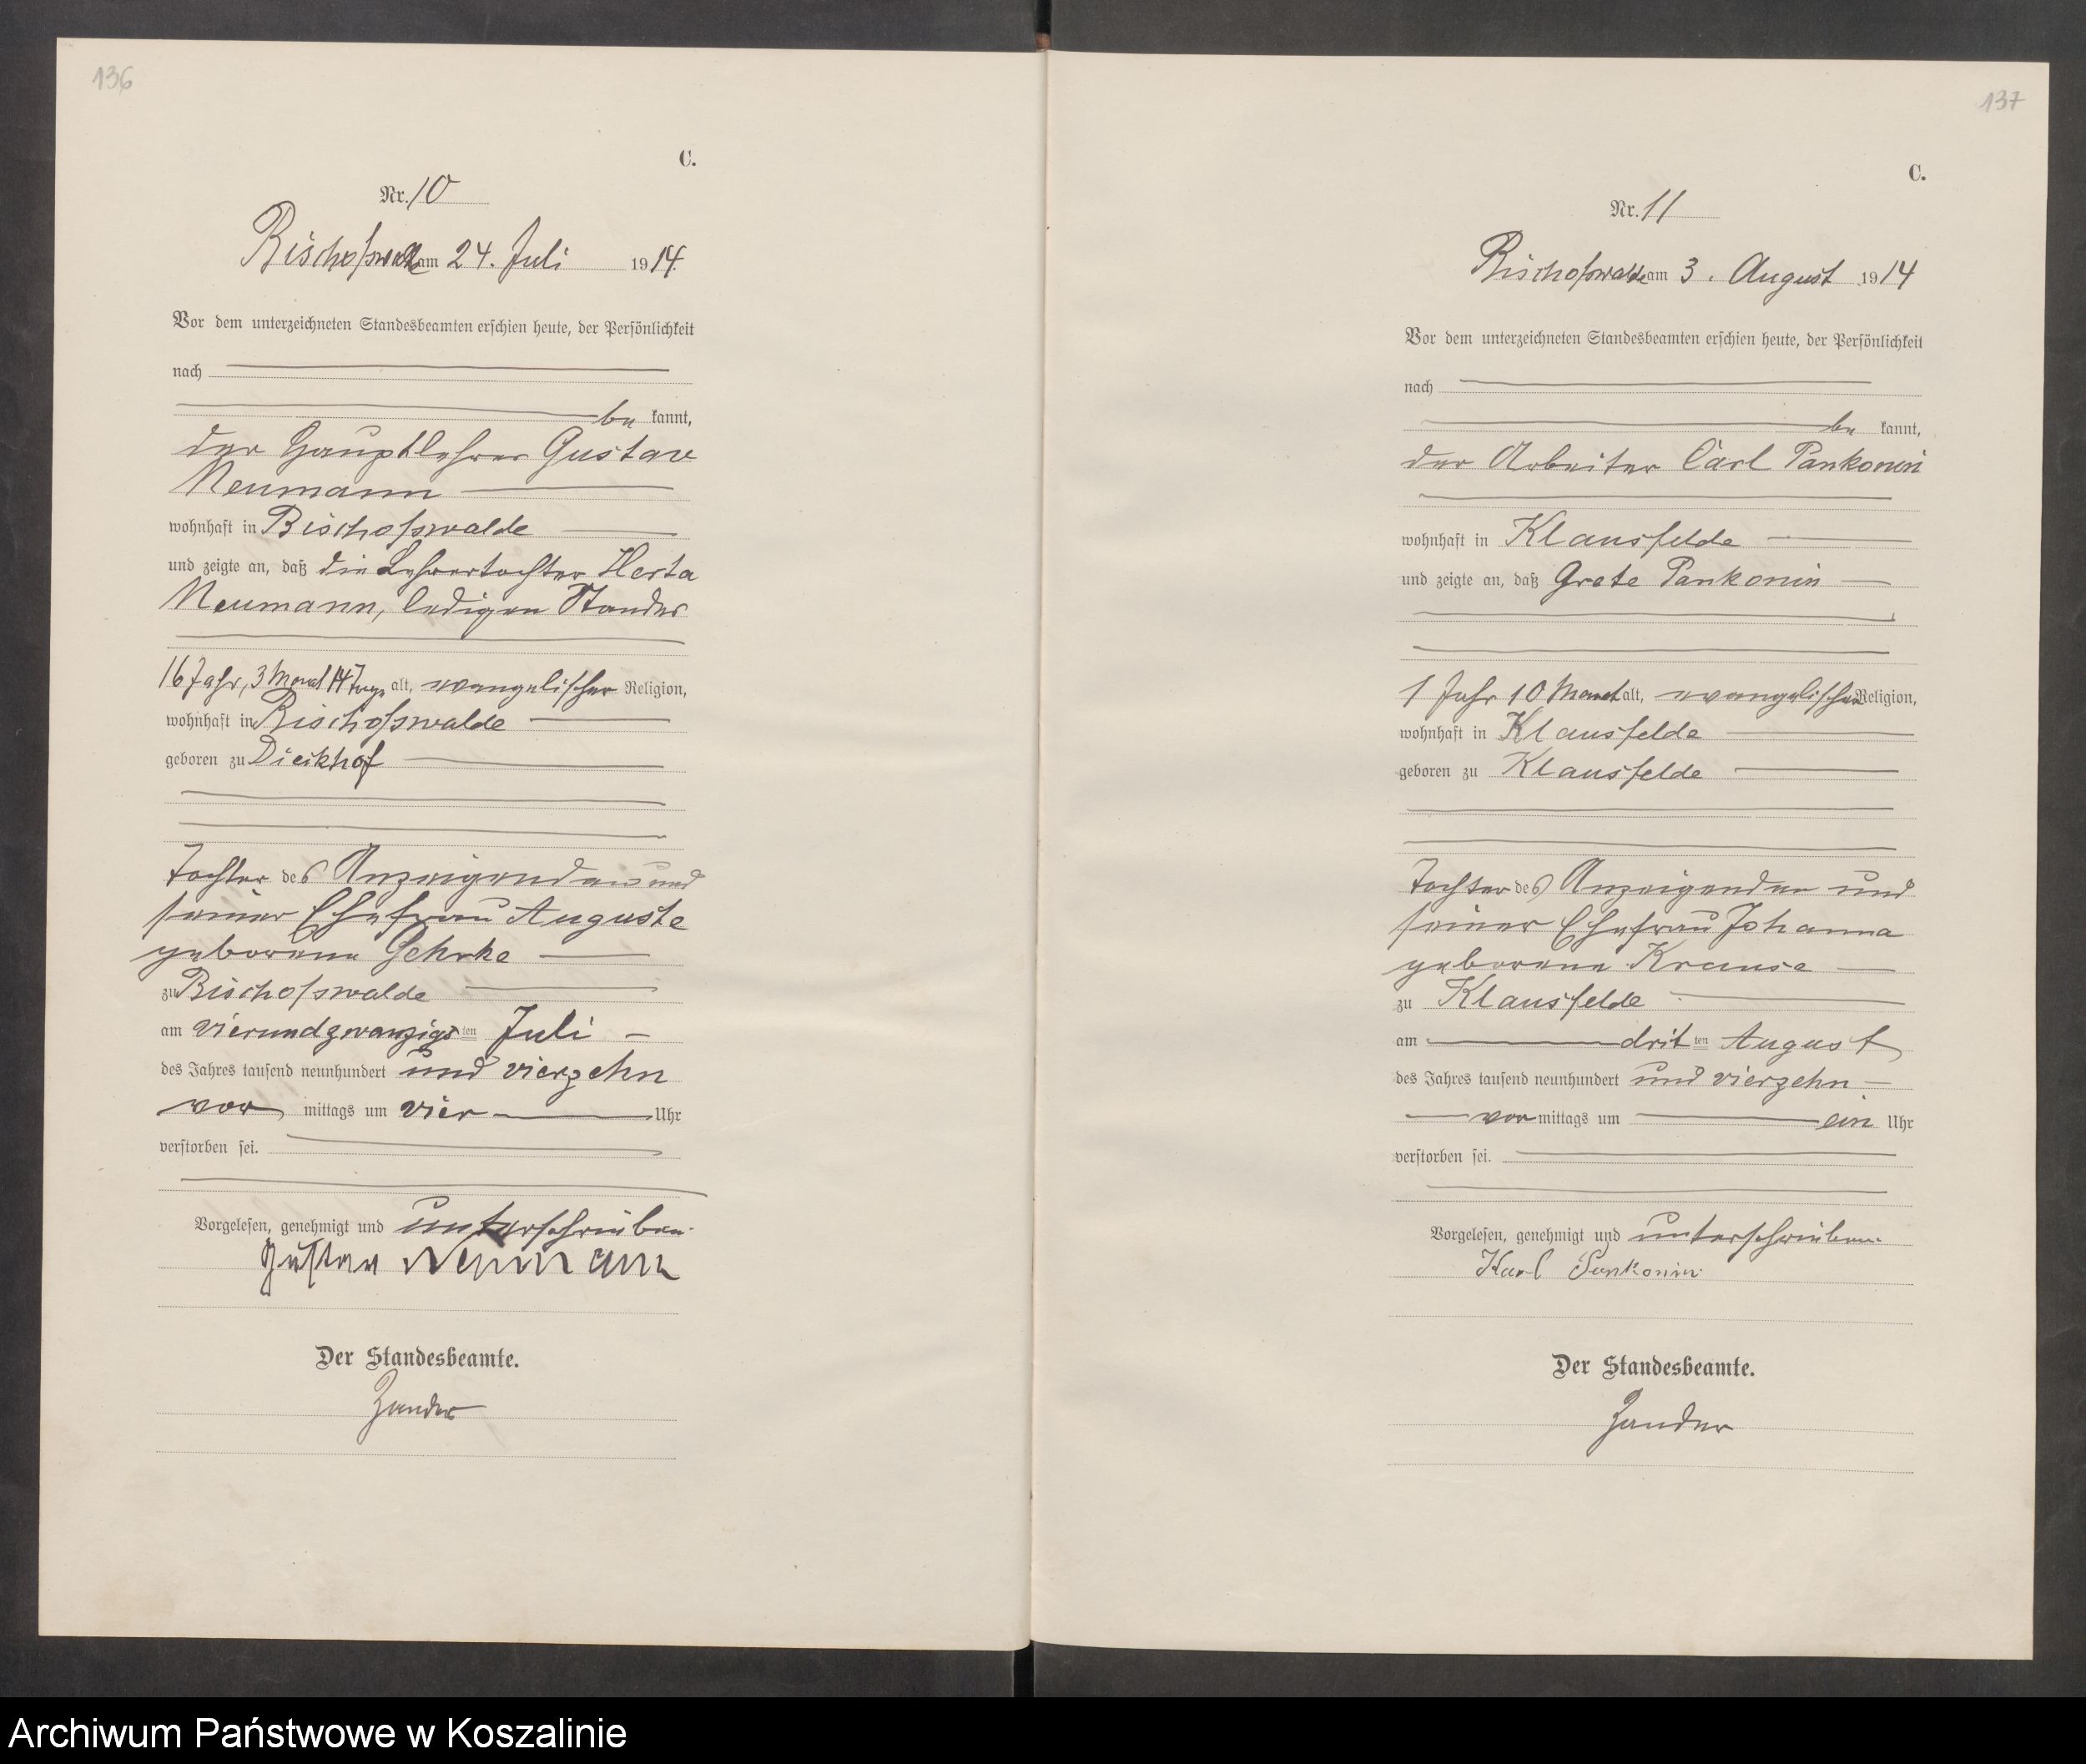 136
C.
Nr. 10
Bischofswalde am 24. Juli 1914.
Vor dem unterzeichneten Standesbeamten erschien heute, der Persönlichkeit
nach
be kannt,
der Hauptlehrer Gustav
Neumann
wohnhaft in Bischofswalde
und zeigte an, daß die Lehrertochter Herta
Neumann, ledigen Standes
16 Jahr, 3 Monat 14 Tage alt, evangelischer Religion,
wohnhaft in Bischofswalde
geboren zu Dieckhof
Tochter des Anzeigenden und
seiner Ehefrau Auguste
geborene Gehrke
zu Bischofswalde
am vierundzwanzigsten Juli
des Jahres tausend neunhundert und vierzehn
vor mittags um vier Uhr
verstorben sei.
Vorgelesen, genehmigt und unterschrieben.
Gustav Neumann
Der Standesbeamte.
Zander
137
C.
Nr. 11
Bischofswalde am 3. August 1914
Vor dem unterzeichneten Standesbeamten erschien heute, der Persönlichkeit
nach
be kannt,
der Arbeiter Carl Pankonin
wohnhaft in Klausfelde
und zeigte an, daß Grete Pankonin
1 Jahr 10 Monat alt, evangelischer Religion,
wohnhaft in Klausfelde
geboren zu Klausfelde
Tochter des Anzeigenden und
seiner Ehefrau Johanna
geborene Krause
zu Klausfelde
am dritten August
des Jahres tausend neunhundert und vierzehn
vor mittags um ein Uhr
verstorben sei.
Vorgelesen, genehmigt und unterschrieben.
Karl Pankonin
Der Standesbeamte.
Zander
Archiwum Państwowe w Koszalinie